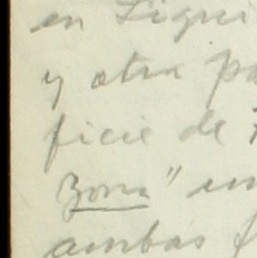 en Liqui
y otra pa
ficie de
Zorra" en
ambas f